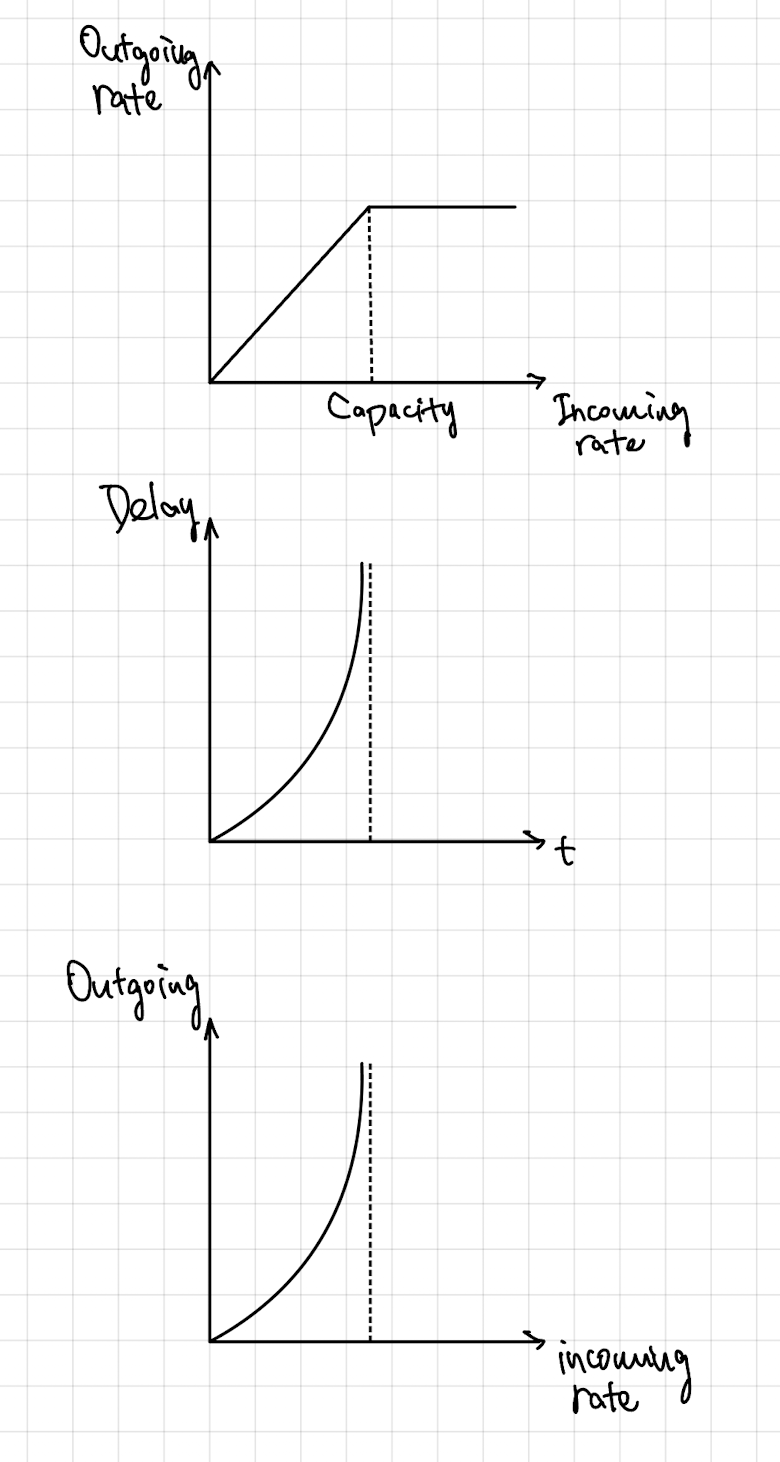 Outgoing
rate
Capacity
Incoming
rate
Delay
t
Outgoing
incoming
rate